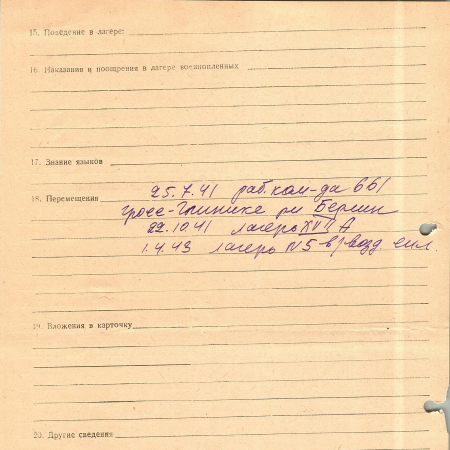 15. Поведение в лагере:
16. Наказания и поощрения в лагере военнопленных
17. Знание языков
18. Перемещения 25.7.41 раб. ком-да 661
гросс-Глинике рн Берлин
22.10.41 лагерь XVII А
1.4.43 лагерь N5 в/возд. сил.
19. Вложения в карточку
20. Другие сведения